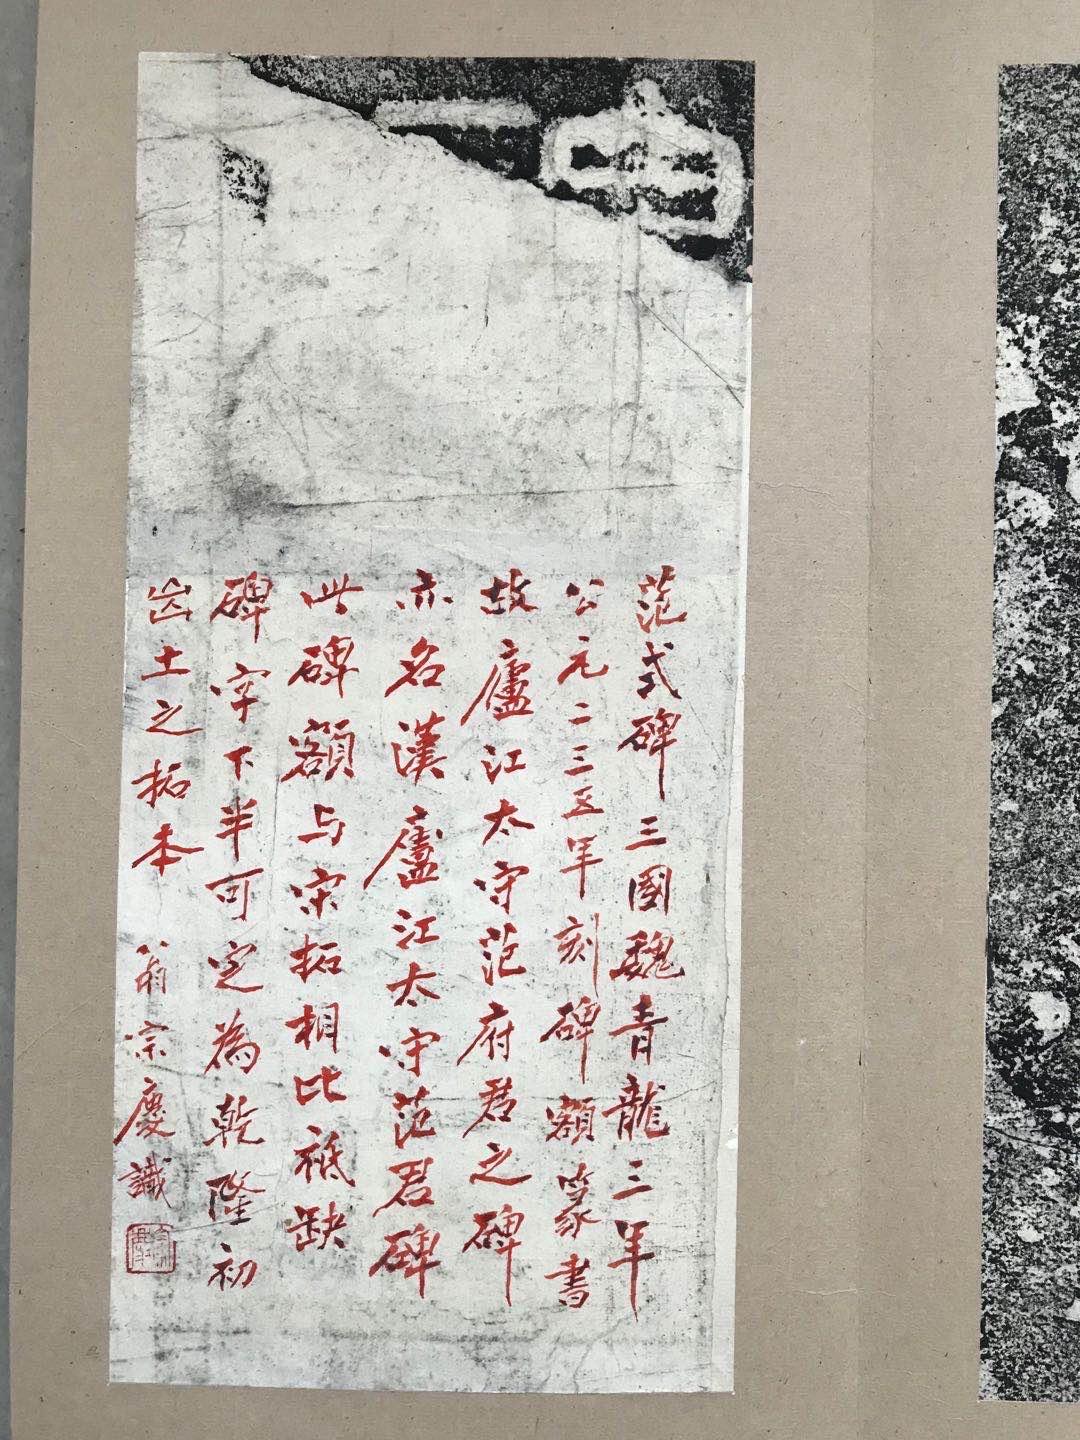 范式碑三國魏青龍三年
公元二三五年刻碑額篆書
故廬江太守范府君之碑
亦名漢廬江太守范君碑
此碑額与宋拓相比祗缺
碑字下半可定為乾隆初
出土之拓本
翁宗慶識